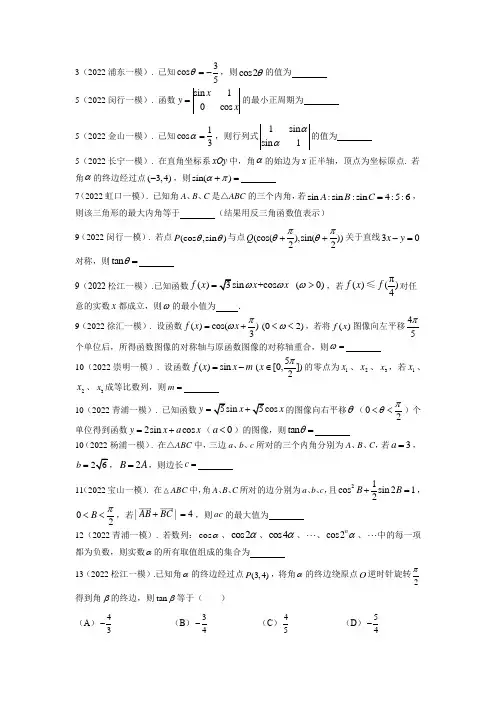 3（2022 浦东一模）. 已知 cosθ = −3/5，则 cos2θ 的值为
5（2022 闵行一模）. 函数 y = |sin x 1; 0 cos x| 的最小正周期为
5（2022 金山一模）. 已知 cosα = 1/3，则行列式 |1 sinα; sinα 1| 的值为
5（2022 长宁一模）. 在直角坐标系 xOy 中，角 α 的始边为 x 正半轴，顶点为坐标原点. 若
角 α 的终边经过点 (−3,4)，则 sin(α + π) =
7（2022 虹口一模）. 已知角 A、B、C 是△ABC 的三个内角，若 sin A : sin B : sin C = 4 : 5 : 6，
则该三角形的最大内角等于 （结果用反三角函数值表示）
9（2022 闵行一模）. 若点 P(cosθ,sinθ) 与点 Q(cos(θ + π/2),sin(θ + π/2)) 关于直线 3x − y = 0
对称，则 tanθ =
9（2022 松江一模）.已知函数 f(x) = √3sin ωx+cosωx (ω > 0)，若 f(x) ≤ f(π/4) 对任
意的实数 x 都成立，则 ω 的最小值为 .
9（2022 徐汇一模）. 设函数 f(x) = cos(ωx + π/3) (0 < ω < 2)，若将 f(x) 图像向左平移 4π/5
个单位后，所得函数图像的对称轴与原函数图像的对称轴重合，则 ω =
10（2022 崇明一模）. 设函数 f(x) = sin x − m (x∈[0, 5π/2]) 的零点为 x₁、x₂、x₃，若 x₁、
x₂、x₃ 成等比数列，则 m =
10（2022 青浦一模）. 已知函数 y = √5sin x + √5cos x 的图像向右平移 θ（0 < θ < π/2）个
单位得到函数 y = 2sin x + a cos x（a < 0）的图像，则 tanθ =
10（2022 杨浦一模）. 在△ABC 中，三边 a、b、c 所对的三个内角分别为 A、B、C，若 a = 3，
b = 2√6，B = 2A，则边长 c =
11（2022 宝山一模）. 在△ABC 中，角 A、B、C 所对的边分别为 a、b、c，且 cos²B + 1/2 sin 2B = 1，
0 < B < π/2，若 | AB + BC | = 4，则 ac 的最大值为
12（2022 青浦一模）. 若数列：cosα、cos2α、cos4α、⋯、cos2ⁿα、⋯中的每一项
都为负数，则实数 α 的所有取值组成的集合为
13（2022 松江一模）.已知角 α 的终边经过点 P(3,4)，将角 α 的终边绕原点 O 逆时针旋转 π/2
得到角 β 的终边，则 tan β 等于（ ）
（A）−4/3 （B）−3/4 （C）4/5 （D）−5/4